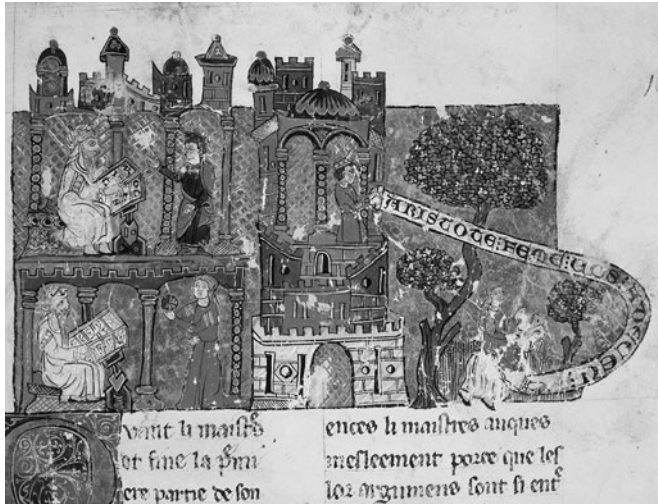 ARISTOTE:FEME:
vant li maistrˢ
ot fine la pͥmi
ere partie de son
ences li maistres auques
mesleement porce que les
lor argumens sont si entˢ